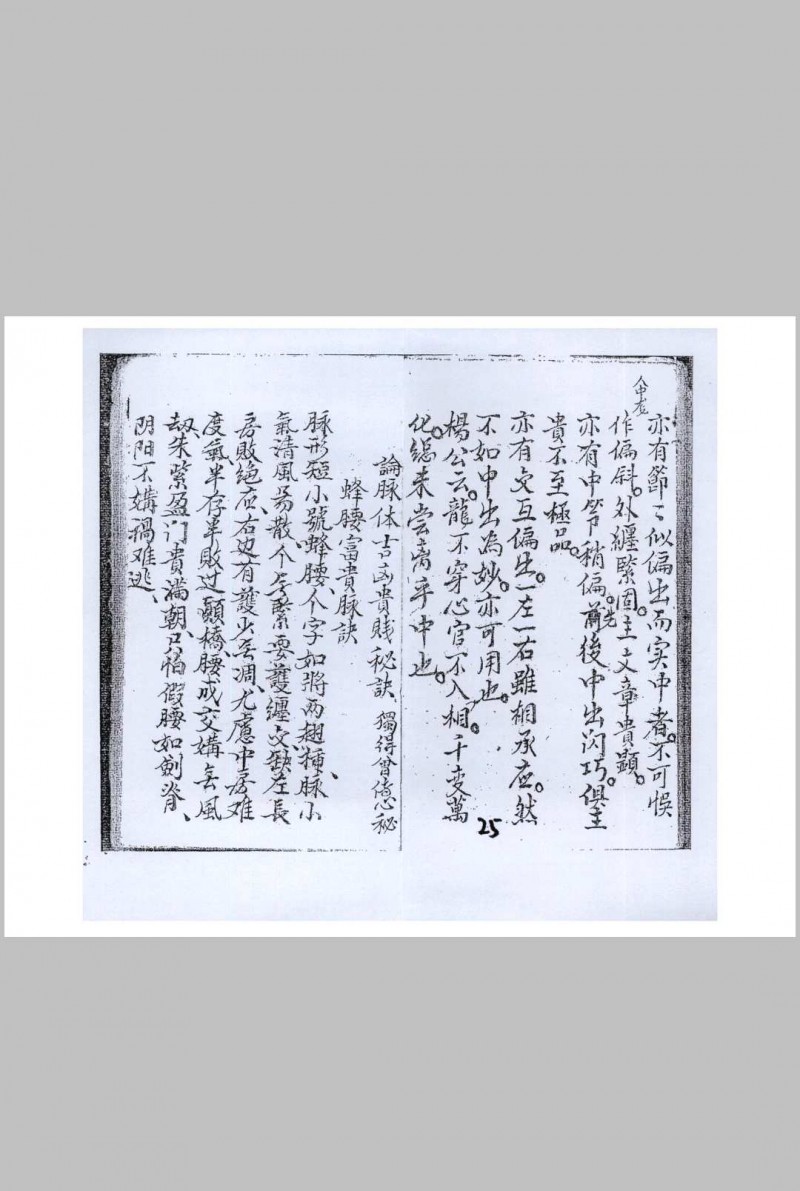 亦有節〻似偏出而实中者。不可悞
作偏斜。外纏緊固。主文章貴顯。
亦有中节稍偏。先前後中出闪巧。俱主
貴不至極品。
亦有交互偏出。一左一右雖相承应。然
不如中出為妙。亦可用也。
楊公云。龍不穿心官不入相。千变萬
化。總未嘗离乎中也。
25
論脉体吉凶貴賤秘訣 獨得曾
蜂腰富貴脉訣
脉形短小號蜂腰、个字如將两翅、脉小
氣清風易散、个字緊要護纏交、缺左長
房敗絕应、右边有護少年凋、尤慮中房难
度氣、半存半敗过顛橋、腰成交媾無風
刼、朱紫盈门貴滿朝、只怕假腰如劍脊、
阴阳不媾禍难逃、